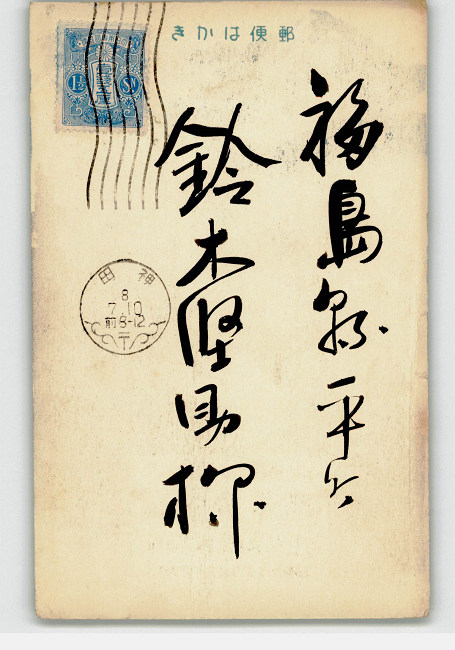 郵便はかき
福島縣平市
鈴木堅助様
1½ Sn
神田
8
7.10
前8-12